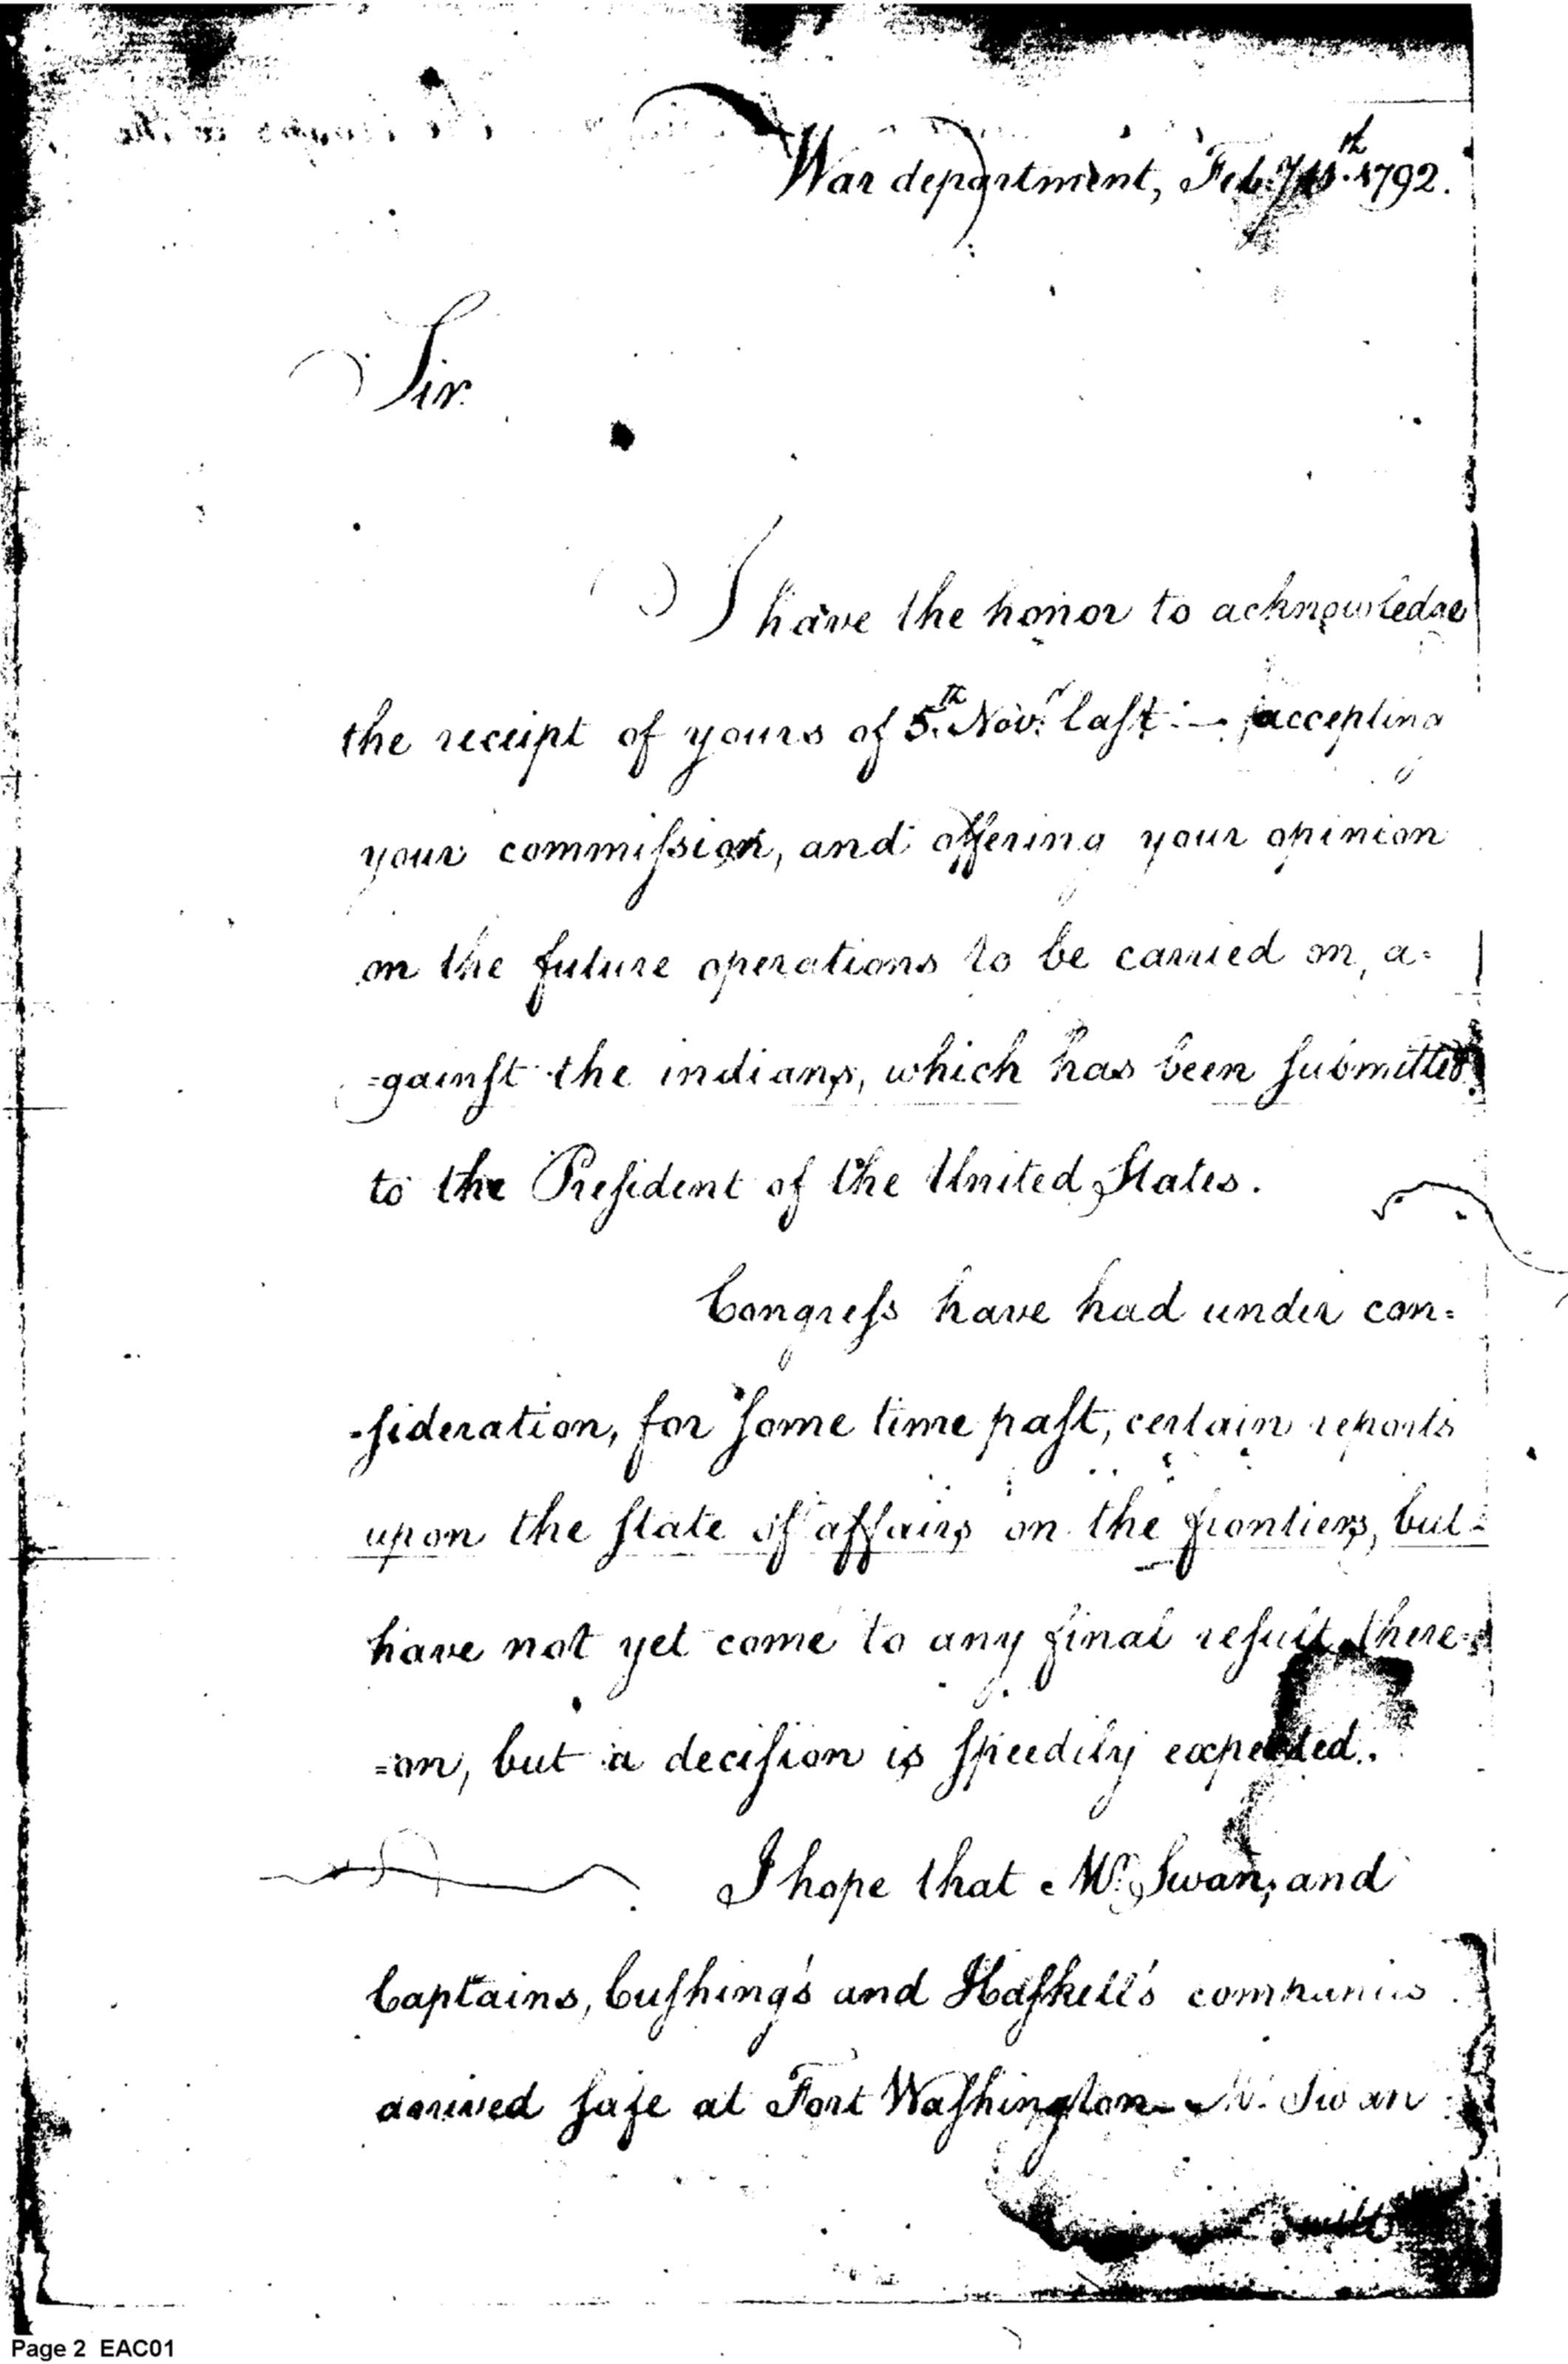 War department, Feby 1792.
Sir.
I have the honor to acknowledge
the receipt of yours of 5.th Nov.r laſt:— accepting
your commiſsion, and offering your opinion
on the future operations to be carried on, a=
=gainſt the indians, which has been ſubmitted
to the Preſident of the United States.
Congreſs have had under con=
=ſideration, for ſome time paſt, certain reports
upon the ſtate of affairs on the frontiers, but
have not yet come to any final reſult there=
=on, but a deciſion is ſpeedily expected.
I hope that Mr. Swan, and
Captains, Cuſhing's and Haſkell's companies
arrived ſafe at Fort Waſhington— Mr. Swan
Page 2 EAC01